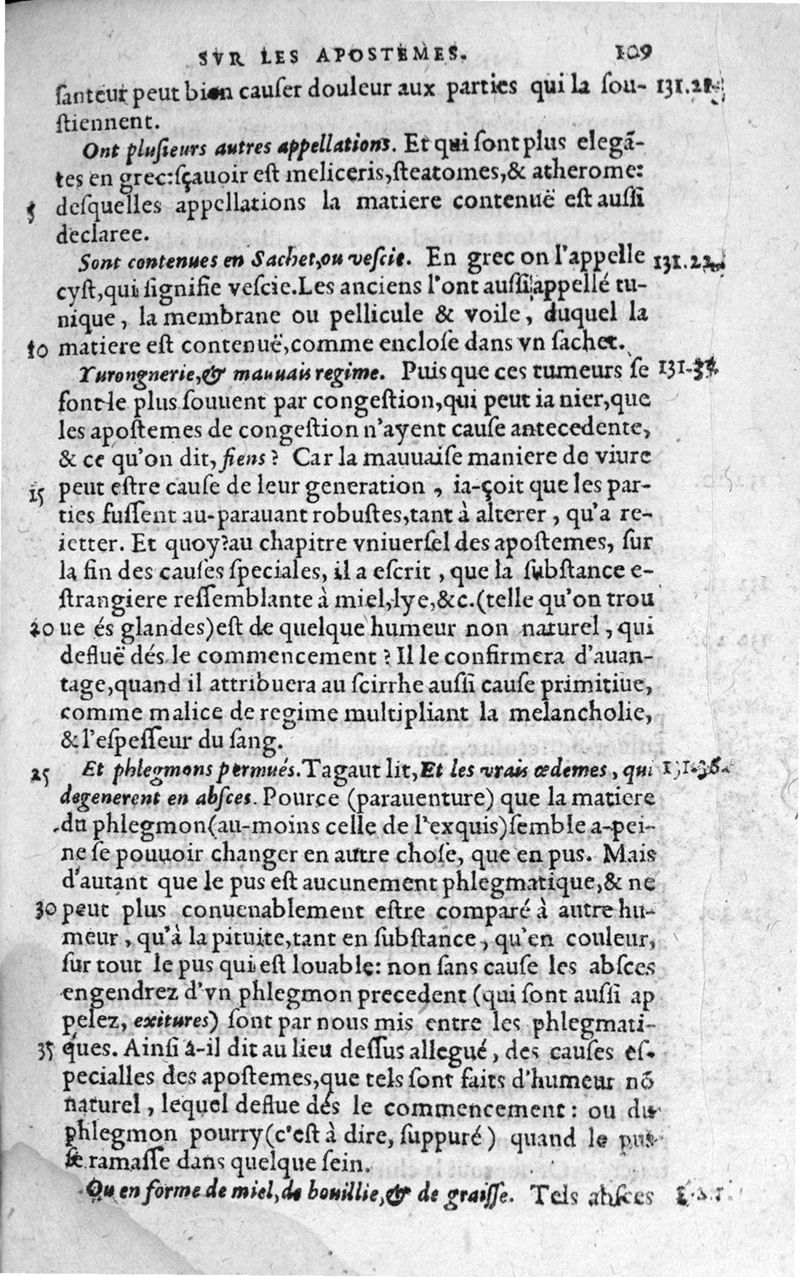 SVR LES APOSTEMES. 109
ſanteur peut bien cauſer douleur aux parties qui la ſou- 131.21.
ſtiennent.
Ont pluſieurs autres appellations. Et qui ſont plus elegã-
tes en grec:ſçauoir eſt meliceris,ſteatomes,& atherome:
5 deſquelles appellations la matiere contenuë eſt auſſi
declaree.
Sont contenues en Sachet,ou veſcie. En grec on l'appelle 131.22.
cyſt,qui ſignifie veſcie.Les anciens l'ont auſſi appellé tu-
nique, la membrane ou pellicule & voile, duquel la
10 matiere eſt contenuë,comme encloſe dans vn ſachet.
Yurongnerie,& mauuais regime. Puis que ces tumeurs ſe
font le plus ſouuent par congeſtion,qui peut ia nier,que
les apoſtemes de congeſtion n'ayent cauſe antecedente,
& ce qu'on dit, fiens? Car la mauuaiſe maniere de viure
15 peut eſtre cauſe de leur generation, ia-çoit que les par-
ties fuſſent au-parauant robuſtes,tant à alterer, qu'a re-
ietter. Et quoy?au chapitre vniuerſel des apoſtemes, ſur
la fin des cauſes ſpeciales, il a eſcrit, que la ſubſtance e-
ſtrangiere reſſemblante à miel,lye,&c.(telle qu'on trou
20 ue és glandes)eſt de quelque humeur non naturel, qui
defluë dés le commencement? Il le confirmera d'auan-
tage,quand il attribuera au ſcirrhe auſſi cauſe primitiue,
comme malice de regime multipliant la melancholie,
& l'eſpeſſeur du ſang.
25 Et phlegmons permués.Tagaut lit,Et les vrais œdemes, qui 131.36.
degenerent en abſces. Pource (parauenture) que la matiere
du phlegmon(au-moins celle de l'exquis)ſemble a-pei-
ne ſe pouuoir changer en autre choſe, que en pus. Mais
d'autant que le pus eſt aucunement phlegmatique,& ne
30 peut plus conuenablement eſtre comparé à autre hu-
meur, qu'à la pituite,tant en ſubſtance, qu'en couleur,
ſur tout le pus qui eſt louable: non ſans cauſe les abſces
engendrez d'vn phlegmon precedent (qui ſont auſſi ap
pelez, exitures) ſont par nous mis entre les phlegmati-
35 ques. Ainſi à-il dit au lieu deſſus allegué, des cauſes eſ-
pecialles des apoſtemes,que tels ſont faits d'humeur nõ
naturel, lequel deflue dés le commencement: ou du
phlegmon pourry(c'eſt à dire, ſuppuré) quand le pus
ſe ramaſſe dans quelque ſein.
Ou en forme de miel,de bouillie,& de graiſſe. Tels abſces